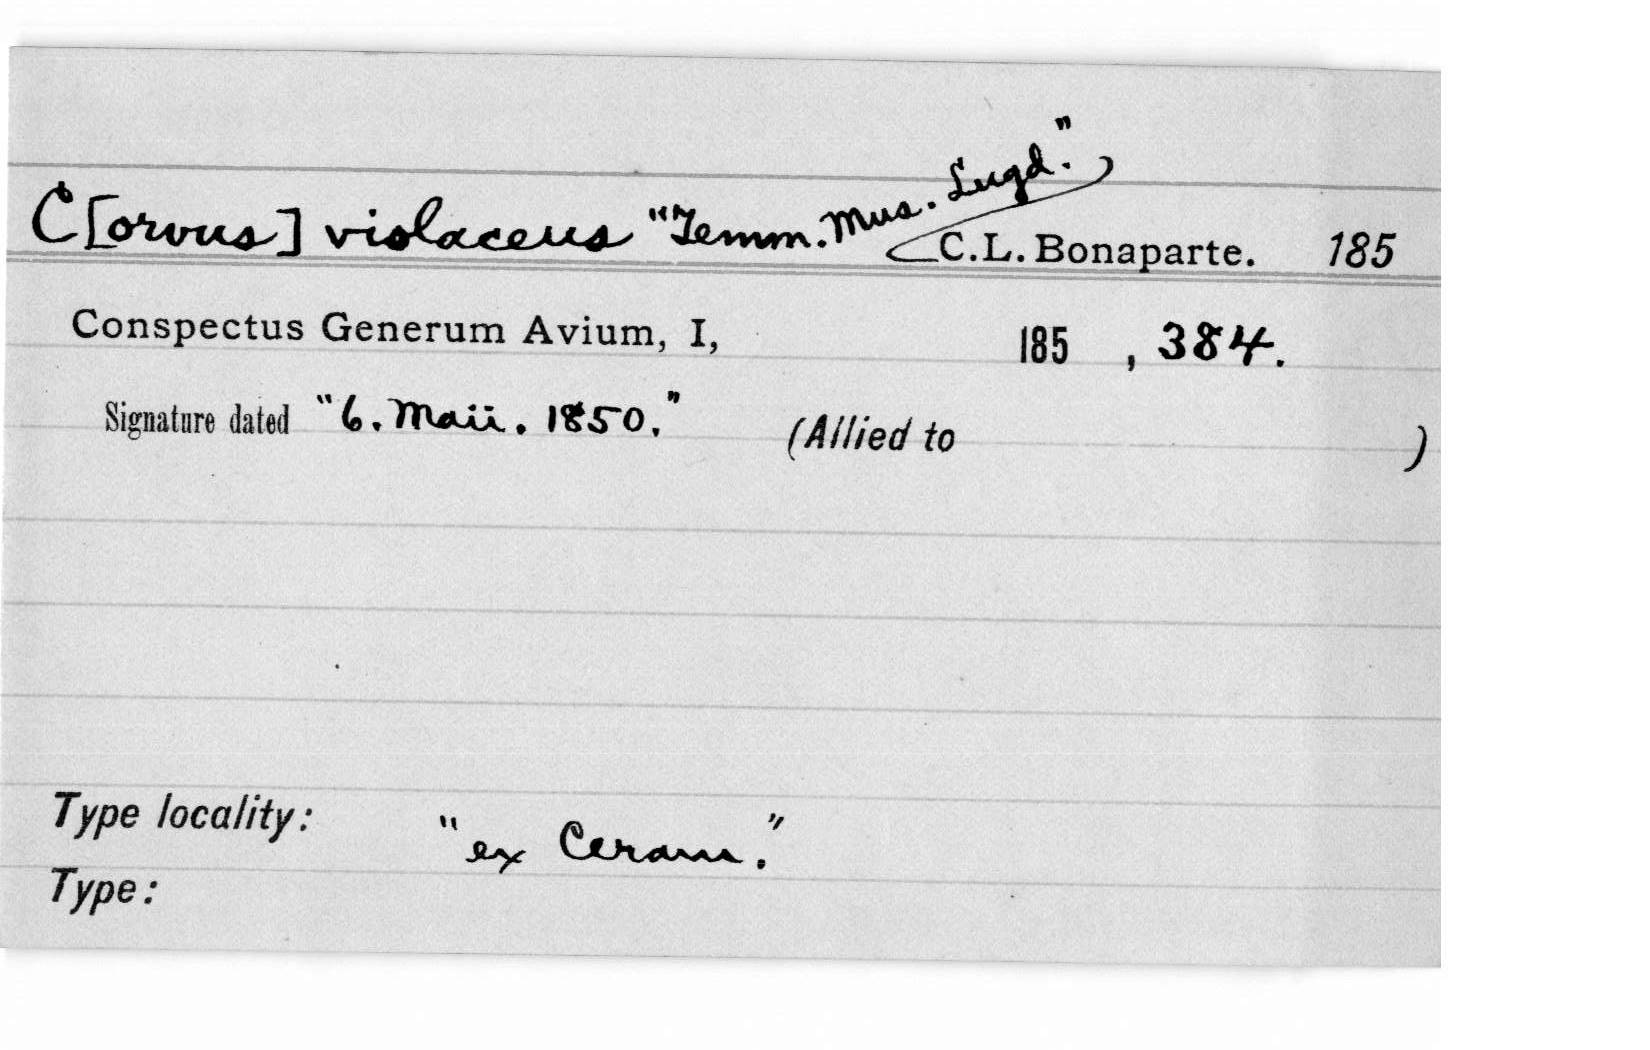 C[orvus] violaceus "Temm. Mus. Lugd." C.L. Bonaparte. 185
Conspectus Generum Avium, I, 185 , 384.
Signature dated "6. Maii. 1850." (Allied to )
Type locality: "ex Ceram."
Type: